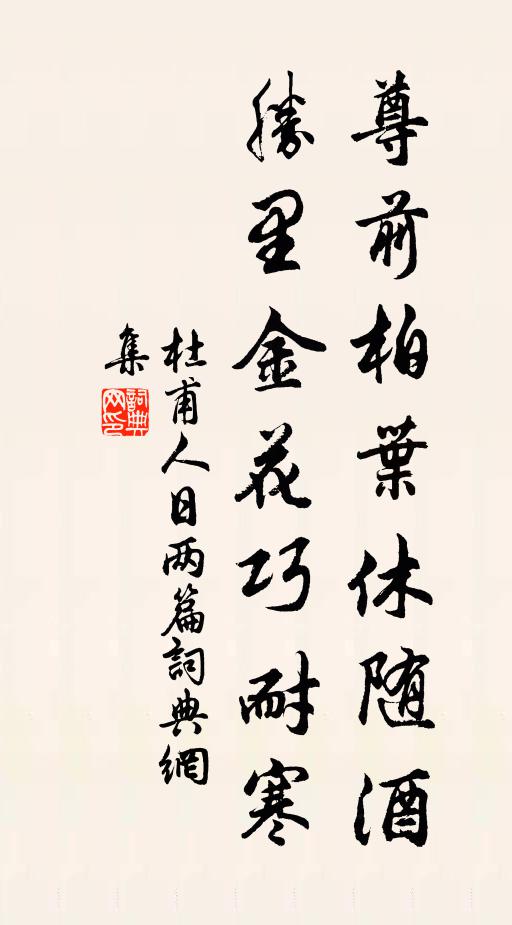 尊前柏葉休随酒
勝里金花巧耐寒
杜甫人日两篇詞典網
集
詞典网印